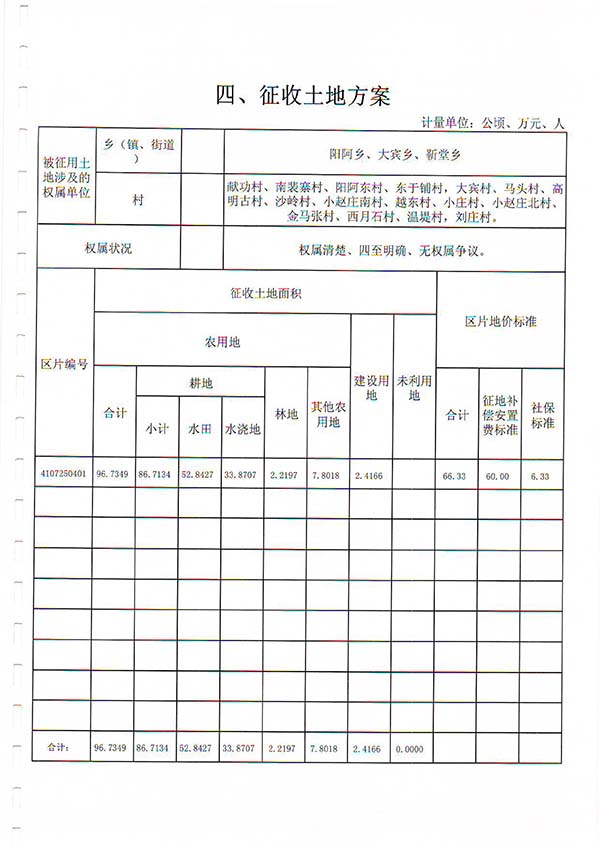 四、征收土地方案
计量单位：公顷、万元、人
被征用土
地涉及的
权属单位
乡（镇、街道
）
阳阿乡、大宾乡、靳堂乡
村
献功村、南裴寨村、阳阿东村、东于铺村，大宾村、马头村、高
明古村、沙岭村、小赵庄南村、越东村、小庄村、小赵庄北村、
金马张村、西月石村、温堤村，刘庄村。
权属状况
权属清楚、四至明确、无权属争议。
区片编号
征收土地面积
区片地价标准
农用地
建设用
地
未利用
地
合计
耕地
林地
其他农
用地
小计
水田
水浇地
合计
征地补
偿安置
费标准
社保
标准
4107250401 96.7349 86.7134 52.8427 33.8707 2.2197 7.8018 2.4166 66.33 60.00 6.33
合计： 96.7349 86.7134 52.8427 33.8707 2.2197 7.8018 2.4166 0.0000